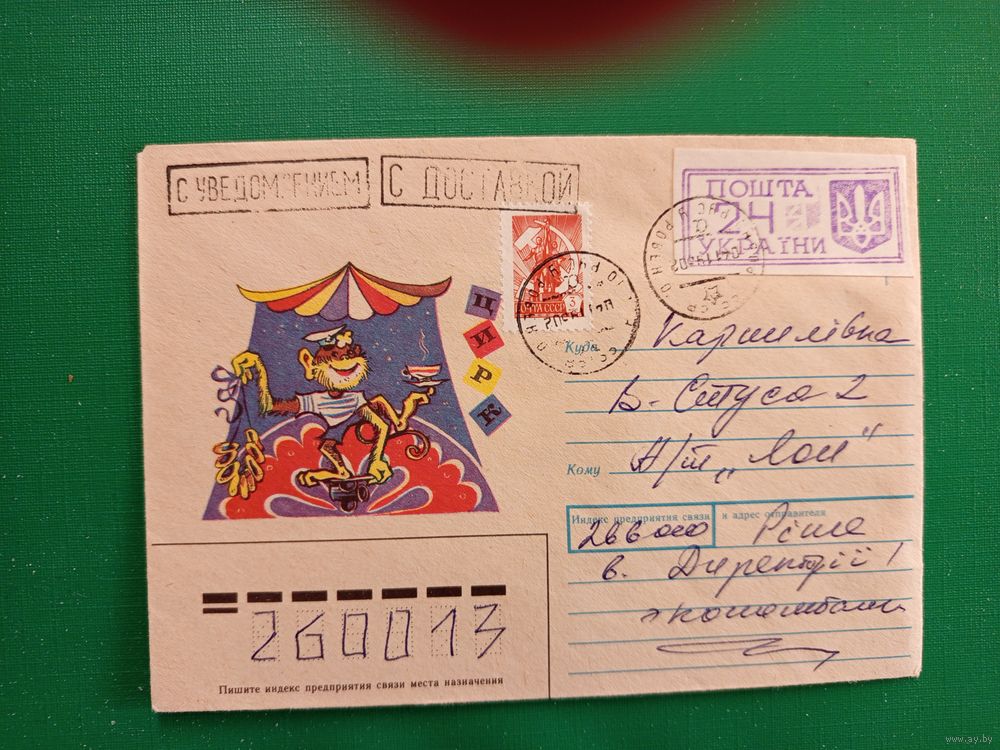 С УВЕДОМЛЕНИЕМ
С ДОСТАВКОЙ
ПОШТА
24
УКРАЇНИ
ПОЧТА СССР
3
ЦИРК
Куда
В. Ситуса 2
Кому
А/т „Лоп“
Индекс предприятия связи и адрес отправителя
266000
в. Дирекції
260013
Пишите индекс предприятия связи места назначения
www.ay.by